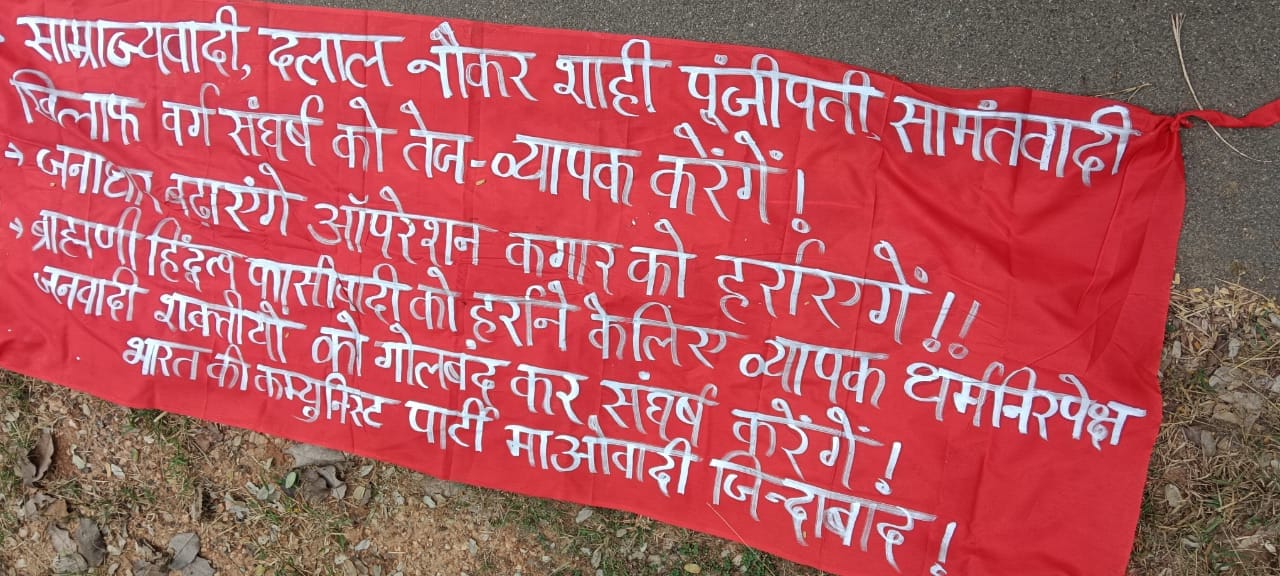 साम्राज्यवादी, दलाल नौकर शाही पूंजीपती, सामंतवादी
खिलाफ वर्ग संघर्ष को तेज-व्यापक करेंगें!
→ जनाधार बढ़ाएंगे ऑपरेशन कगार को हराएगें!!
→ ब्राह्मणी हिंदुत्व फासीवादी को हराने केलिए व्यापक धर्मनिरपेक्ष
जनवादी शक्तीयो को गोलबंद कर, संघर्ष करेंगें!
भारत की कम्युनिस्ट पार्टी माओवादी जिन्दाबाद!